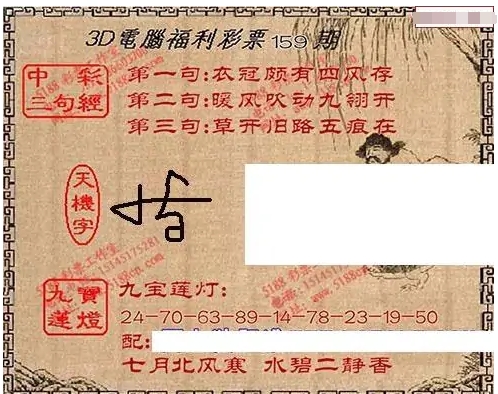 3D電腦福利彩票159期
中彩三句經
第一句:衣冠颇有四风存
第二句:暖风吹动九翎开
第三句:草开旧路五痕在
天機字
九寶蓮燈
九宝莲灯:
24-70-63-89-14-78-23-19-50
配:
七月北风寒 水碧二静香
5188彩票工作室
电话:15145175281
www.5188cp.com